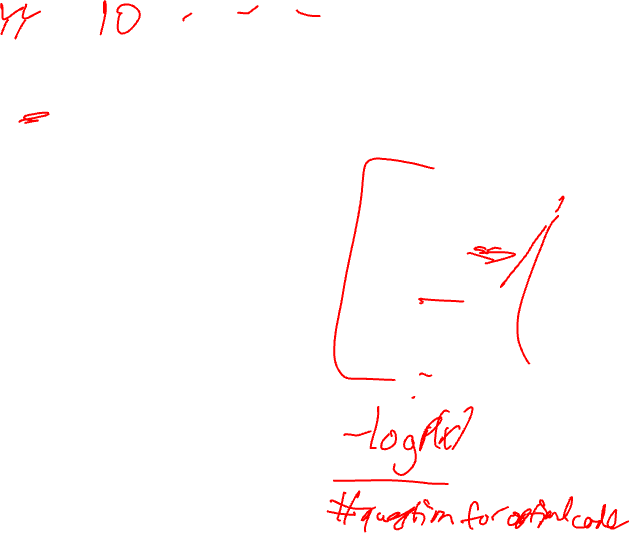 10
-log P(x)
# question for optimal code